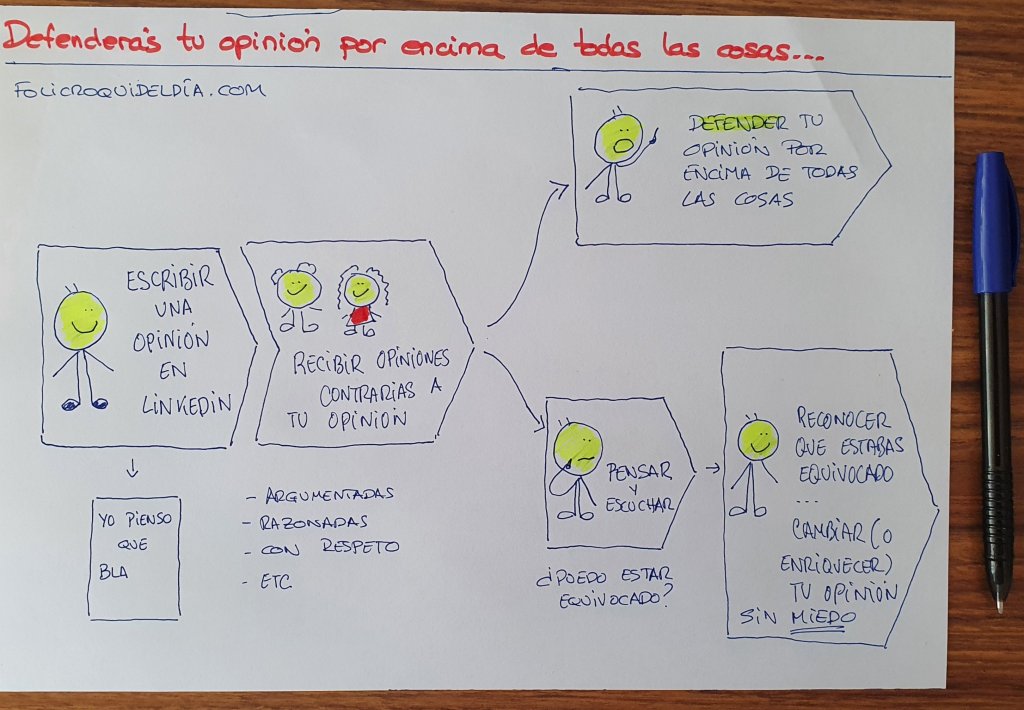 Defenderás tu opinión por encima de todas las cosas...
FOLICROQUIDELDÍA.COM
DEFENDER TU
OPINIÓN POR
ENCIMA DE TODAS
LAS COSAS
ESCRIBIR
UNA
OPINIÓN
EN
LINKEDIN
RECIBIR OPINIONES
CONTRARIAS A
TU OPINIÓN
YO PIENSO
QUE
BLA
- ARGUMENTADAS
- RAZONADAS
- CON RESPETO
- ETC
PENSAR
Y
ESCUCHAR
¿PUEDO ESTAR
EQUIVOCADO?
RECONOCER
QUE ESTABAS
EQUIVOCADO
...
CAMBIAR (O
ENRIQUECER)
TU OPINIÓN
SIN MIEDO